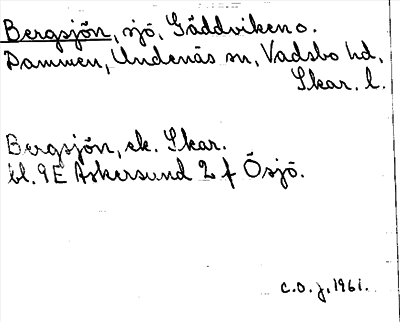 Bergsjön, sjö, Gäddviken o.
Dammen, Undenäs sn, Vadsbo hd,
Skar. l.
Bergsjön, ek. Skar.
bl. 9E Askersund 2 f Ösjö.
C.O.J. 1961.